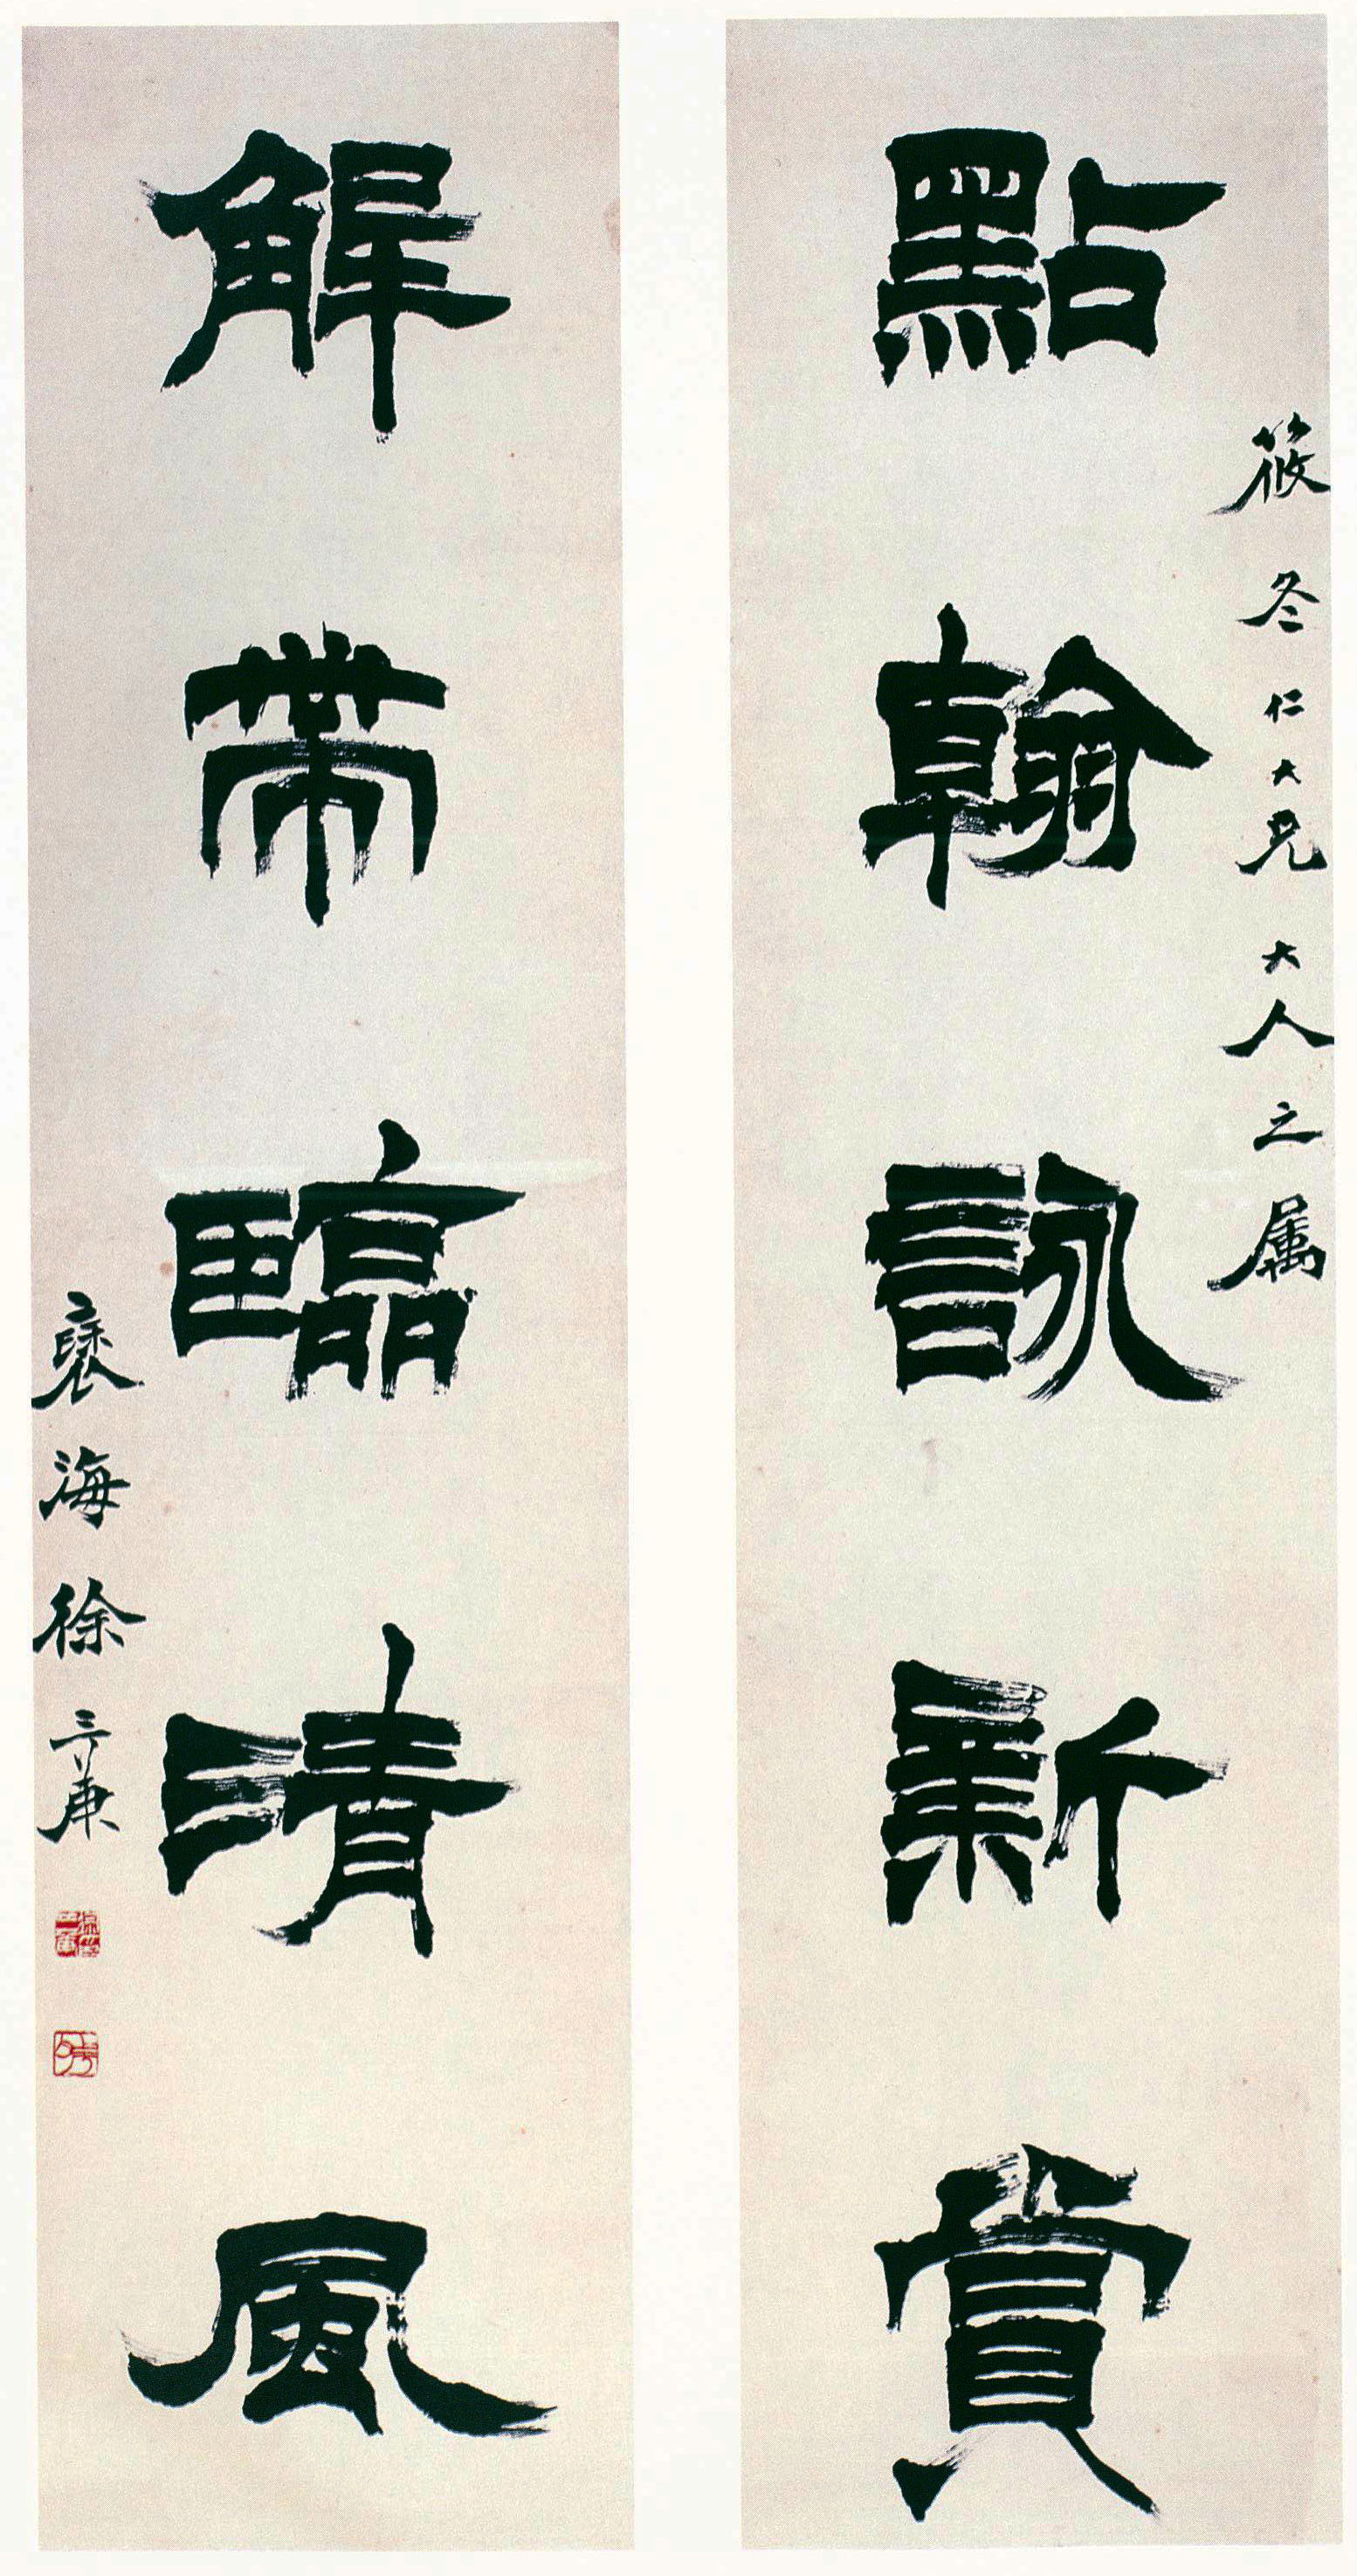 點翰詠新賞
筱冬仁大兄大人之属
解帶臨晴風
褱海徐三庚